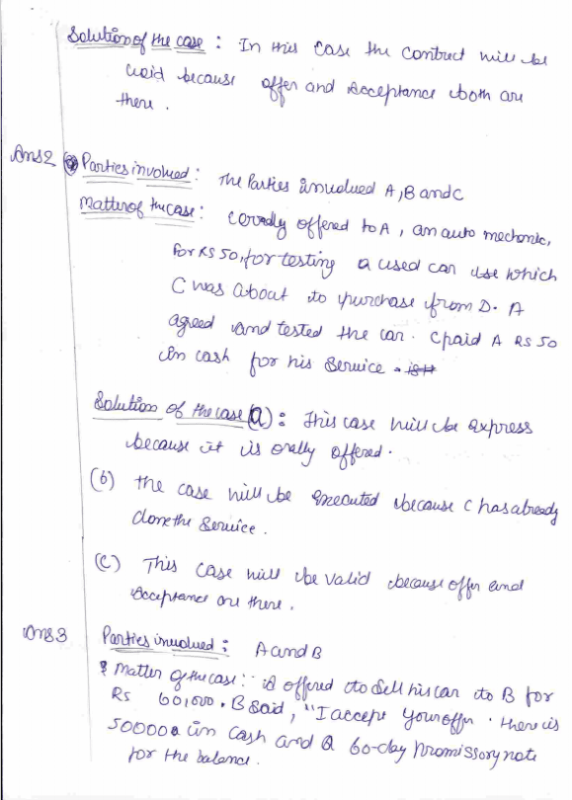 Solution of the case : In this case the contract will be
void because offer and acceptance both are
there .
Ans2 Parties involved : The Parties involved A, B and C
Matter of the case : C orally offered to A, an auto mechanic,
for RS 50, for testing a used car which
C was about to purchase from D. A
agreed and tested the car. C paid A RS 50
in cash for his service .
Solution of the case (a) : This case will be express
because it is orally offered .
(b) the case will be executed because C has already
done the service .
(c) This case will be valid because offer and
acceptance are there .
Ans3 Parties involved : A and B
Matter of the case : offered to sell his car to B for
RS 60,000 . B said, "I accept your offer . there is
50000 in cash and a 60-day promissory note
for the balance .